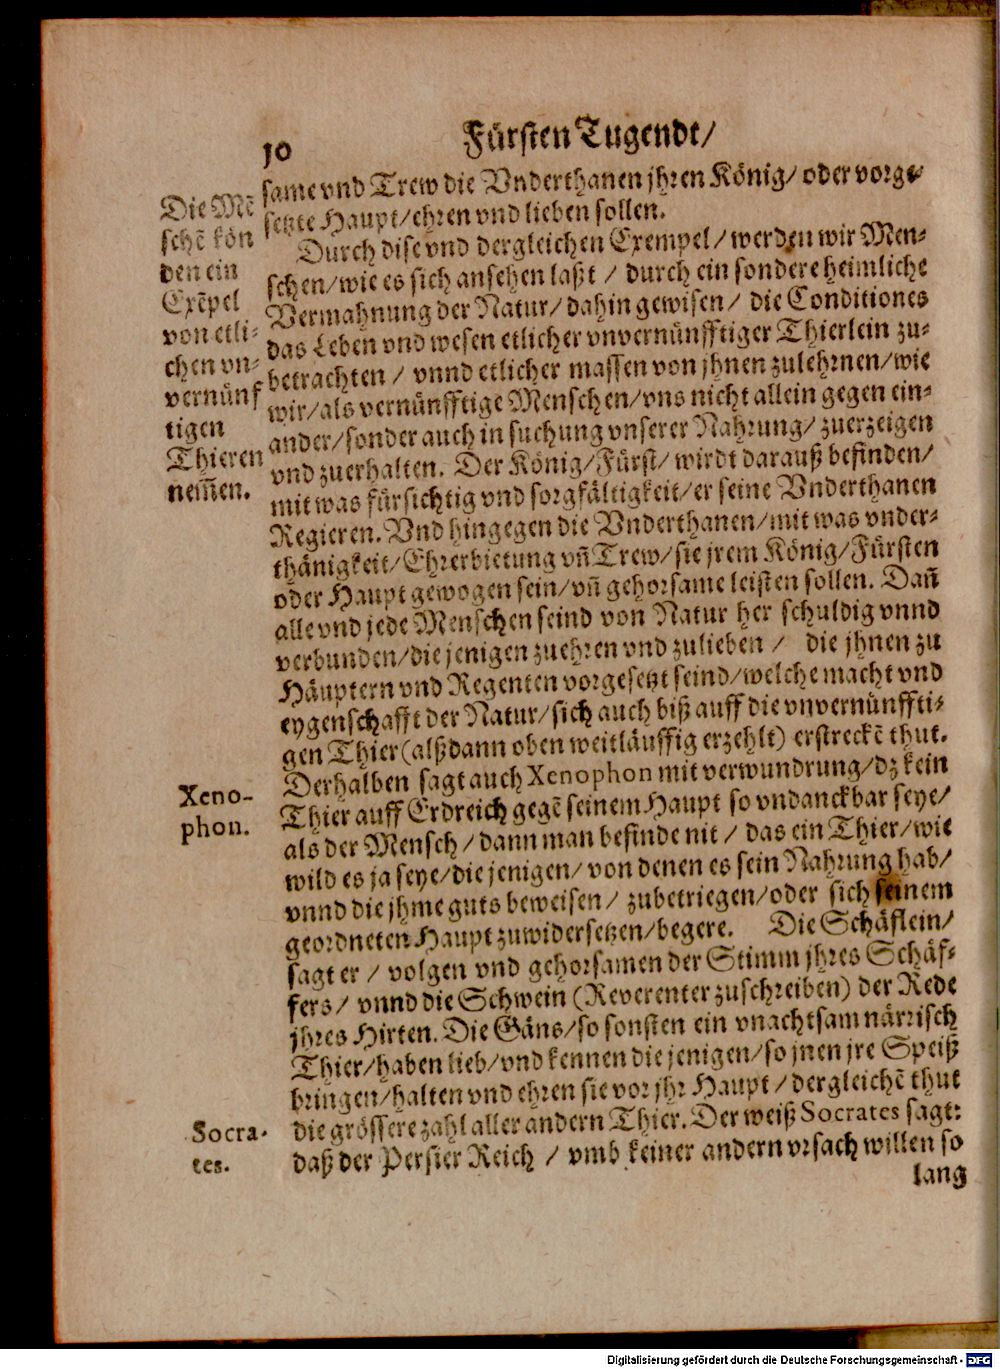 10
Fürsten Tugendt/
same vnd Trew die Vnderthanen jhren König/ oder vorge-
setzte Haupt/ehren vnd lieben sollen.
Durch dise vnd dergleichen Exempel/werden wir Men-
schen/wie es sich ansehen laßt / durch ein sondere heimliche
Vermahnung der Natur/dahin gewisen/ die Conditiones
das Leben vnd wesen etlicher vnvernünfftiger Thierlein zu-
betrachten / vnnd etlicher massen von jhnen zulehrnen/wie
wir/als vernünfftige Menschen/vns nicht allein gegen ein-
ander/sonder auch in suchung vnserer Nahrung/ zuerzeigen
vnd zuerhalten. Der König/Fürst/ wirdt darauß befinden/
mit was fürsichtig vnd sorgfältigkeit/er seine Vnderthanen
Regieren. Vnd hingegen die Vnderthanen/mit was vnder-
thänigkeit/Ehrerbietung vn̄ Trew/sie jrem König/Fürsten
oder Haupt gewogen sein/vn̄ gehorsame leisten sollen. Dan̄
alle vnd jede Menschen seind von Natur her schuldig vnnd
verbunden/die jenigen zuehren vnd zulieben / die jhnen zu
Häuptern vnd Regenten vorgesetzt seind/welche macht vnd
eygenschafft der Natur/sich auch biß auff die vnvernünffti-
gen Thier(alß dann oben weitläuffig erzehlt) erstreckē thut.
Derhalben sagt auch Xenophon mit verwundrung/dz kein
Thier auff Erdreich gegē seinem Haupt so vndanckbar seye/
als der Mensch/dann man befinde nit / das ein Thier/wie
wild es ja seye/die jenigen/von denen es sein Nahrung hab/
vnnd die jhme guts beweisen/ zubetriegen/oder sich seinem
geordneten Haupt zuwidersetzen/begere. Die Schäflein/
sagt er / volgen vnd gehorsamen der Stimm jhres Schäf-
fers/ vnnd die Schwein (Reverenter zuschreiben) der Rede
jhres Hirten. Die Gäns/so sonsten ein vnachtsam närrisch
Thier/haben lieb/vnd kennen die jenigen/so jnen jre Speiß
bringen/halten vnd ehren sie vor jhr Haupt/dergleichē thut
die grössere zahl aller andern Thier. Der weiß Socrates sagt:
daß der Persier Reich / vmb keiner andern vrsach willen so
lang
Die Mē
schē kön
den ein
Exēpel
von etli-
chen vn-
vernünf
tigen
Thieren
nem̄en.
Xeno-
phon.
Socra-
tes.
Digitalisierung gefördert durch die Deutsche Forschungsgemeinschaft - DFG